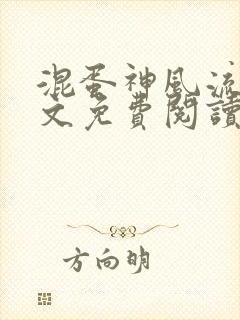 混蛋神風流
文免費閱讀
方向明